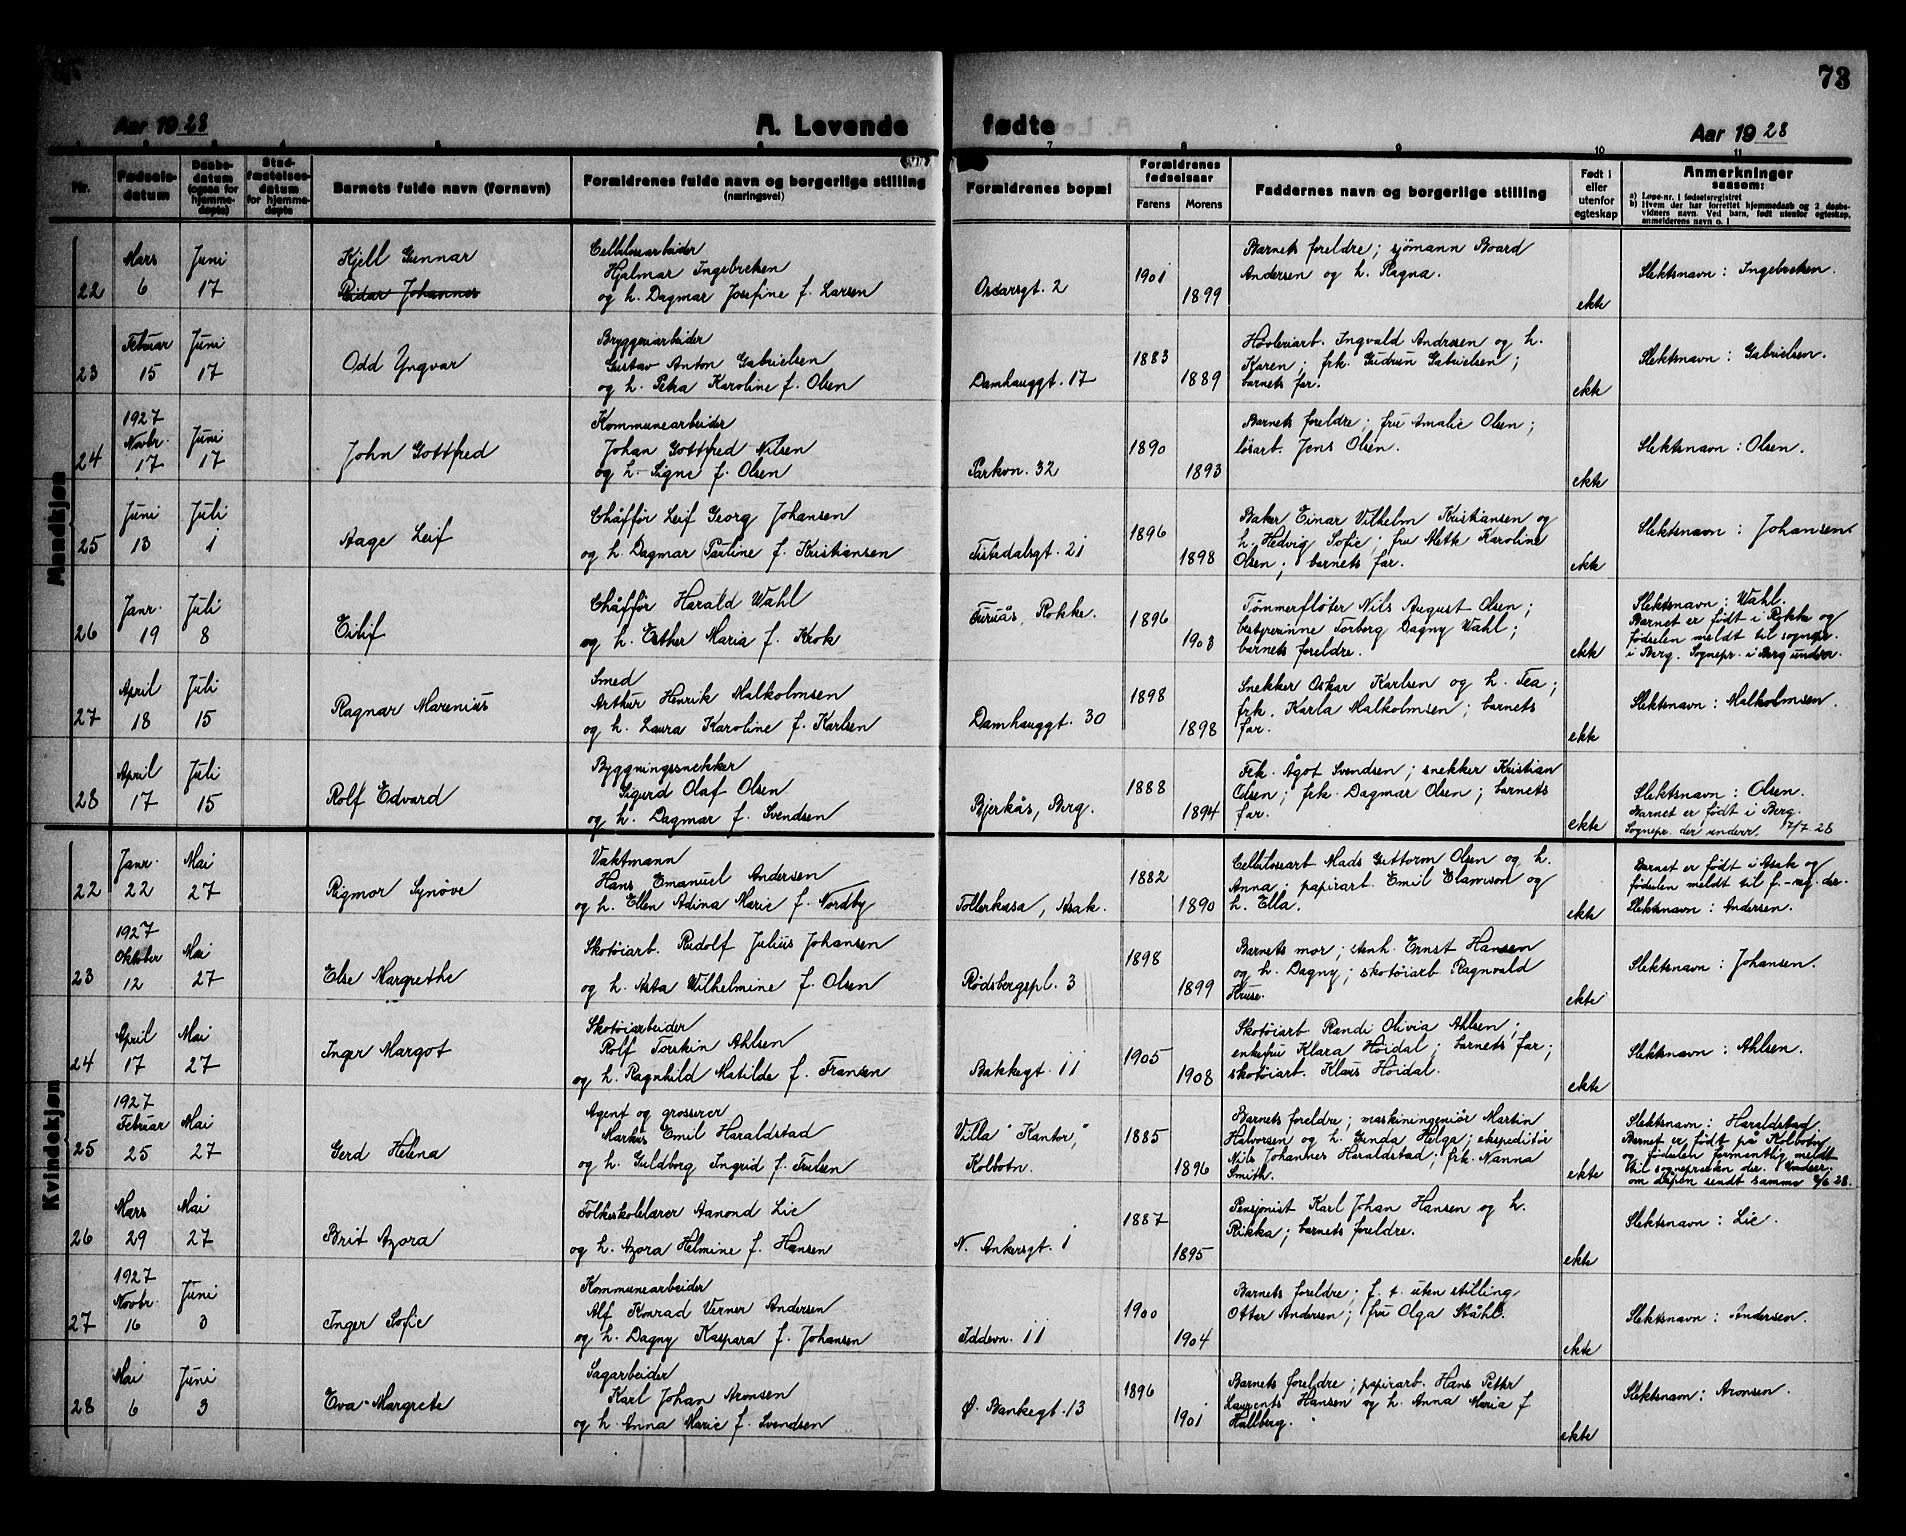 73
Aar 1928
A. Levende
fødte
Aar 1928
Nr.
Fødsels-
datum
Daabs-
datum
(ogsaa for
hjemme-
døpte)
Stad-
fæstelses-
datum
for hjemme-
døpte
Barnets fulde navn (fornavn)
Forældrenes fulde navn og borgerlige stilling
(næringsvei)
7
8
9
10
11
Forældrenes bopæl
Forældrenes
fødselsaar
Farens
Morens
Faddernes navn og borgerlige stilling
Født i
eller
utenfor
egteskap
Anmerkninger
saasom:
a) Løpe-nr. i fødselsregistret
b) Hvem der har forrettet hjemmedaab og 2 daabs-
vidners navn. Ved barn, født utenfor egteskap,
anmelderens navn o. l
Mandkjøn
22
Mars
6
Juni
17
Kjell Gunnar
Reidar Johannes
Cellulosearbeider
Hjalmar Ingebretsen
og h. Dagmar Josefine f. Larsen
Oscarsgt. 2
1901
1899
Barnets foreldre; sjömann Board
Andersen og h. Ragna.
ekte
Slektsnavn: Ingebretsen.
23
Februar
15
Juni
17
Odd Yngvar
Bryggeriarbeider
Gustav Anton Gabrielsen
og h. Petra Karoline f. Olsen
Damhauggt. 17
1883
1889
Høvleriarb. Ingvald Andresen og h.
Karen; frk. Gudrun Gabrielsen;
barnets far.
ekte
Slektsnavn: Gabrielsen.
24
1927
Novbr.
17
Juni
17
John Gottfred
Kommunearbeider
Johan Gottfred Nilsen
og h. Signe f. Olsen
Parkvn. 32
1890
1893
Barnets foreldre; fru Amalie Olsen;
løsarb. Jens Olsen.
ekte
Slektsnavn: Olsen.
25
Juni
13
Juli
1
Aage Leif
Chåffør Leif Georg Johansen
og h. Dagmar Pauline f. Kristiansen
Tistedalsgt. 21
1896
1898
Baker Einar Vilhelm Kristiansen og
h. Hedvig Sofie; fru Alette Karoline
Olsen; barnets far.
ekte
Slektsnavn: Johansen
26
Janr.
19
Juli
8
Eilif
Chåffør Harald Wahl
og h. Esther Maria f. Krok
Furuås, Rokke.
1896
1903
Tømmerfløter Nils August Olsen;
bestyrerinne Torberg Dagny Wahl;
barnets foreldre.
ekte
Slektsnavn: Wahl.
Barnet er født i Rokke og
fødselen meldt til sognepr.
i Berg. Sognepr. i Berg underr.
27
April
18
Juli
15
Ragnar Marenius
Smed
Arthur Henrik Malkolmsen
og h. Laura Karoline f. Karlsen
Damhauggt. 30
1898
1898
Snekker Oskar Karlsen og h. Tea;
frk. Karla Malkolmsen; barnets
far.
ekte
Slektsnavn: Malkolmsen.
28
April
17
Juli
15
Rolf Edvard
Byggningssnekker
Sigurd Olaf Olsen
og h. Dagmar f. Svendsen
Bjerkås, Berg.
1888
1894
Frk. Ågot Svendsen; snekker Kristian
Olsen; frk. Dagmar Olsen; barnets
far.
ekte
Slektsnavn: Olsen.
Barnet er født i Berg.
Sognepr. der underr. 17/7 28
Kvindekjøn
22
Janr.
22
Mai
27
Rigmor Synøve
Vaktmann
Hans Emanuel Andersen
og h. Ellen Adina Marie f. Nordby
Tollerkasa, Asak.
1882
1890
Cellulosearb Mads Guttorm Olsen og h.
Anna; papirarb. Emil Elawson og
h. Ella.
ekte
Barnet er født i Asak og
fødselen meldt til f.-reg. der.
Slektsnavn: Andersen.
23
1927
Oktober
12
Mai
27
Else Margrethe
Skotøiarb. Rudolf Julius Johansen
og h. Asta Wilhelmine f. Olsen
Rødsbergspl. 3
1898
1899
Barnets mor; stenh. Ernst Hansen
og h. Dagny; skotøiarb Ragnvald
Kruse.
ekte
Slektsnavn: Johansen.
24
April
17
Mai
27
Inger Margot
Skotøiarbeider
Rolf Torstein Ahlsen
og h. Ragnhild Matilde f. Fransen
Bakkegt. 11
1905
1908
Skotøiarb Randi Olivia Ahlsen;
enkefru Klara Høidal; barnets far;
skotøiarb. Klaus Høidal.
ekte
Slektsnavn: Ahlsen.
25
1927
Februar
25
Mai
27
Gerd Helena
Agent og grosserer
Markus Emil Haraldstad
og h. Guldborg Ingrid f. Trulsen
Villa "Kantor",
Kolbotn.
1885
1896
Barnets foreldre; maskiningeniör Martin
Halvorsen og h. Gunda Helga; ekspeditör
Nils Johannes Haraldstad; frk. Nanna
Smith.
ekte
Slektsnavn: Haraldstad.
Barnet er født på Kolbotn
og fødselen formentlig meldt
til sognepresten der. Underr.
om dåpen sendt samme 2/6 28.
26
Mars
29
Mai
27
Brit Azora
Folkeskolelærer Aanond Lie
og h. Azora Helmine f. Hansen
N. Ankersgt. 1
1887
1895
Pensjonist Karl Johan Hansen og h.
Rikka; barnets foreldre.
ekte
Slektsnavn: Lie.
27
1927
Novbr.
16
Juni
3
Inger Sofie
Kommunearbeider
Alf Konrad Verner Andersen
og h. Dagny Kaspara f. Johansen
Iddevn. 11
1900
1904
Barnets foreldre; f. t. uten stilling
Otter Andersen; fru Olga Ståhl.
ekte
Slektsnavn: Andersen.
28
Mai
6
Juni
3
Eva Margrete
Sagarbeider
Karl Johan Aronsen
og h. Anna Marie f. Svendsen
Ø. Bankegt. 13
1896
1901
Barnets foreldre; papirarb. Hans Petter
Laurents Hansen og h. Anna Maria f
Hallberg.
ekte
Slektsnavn: Aronsen.